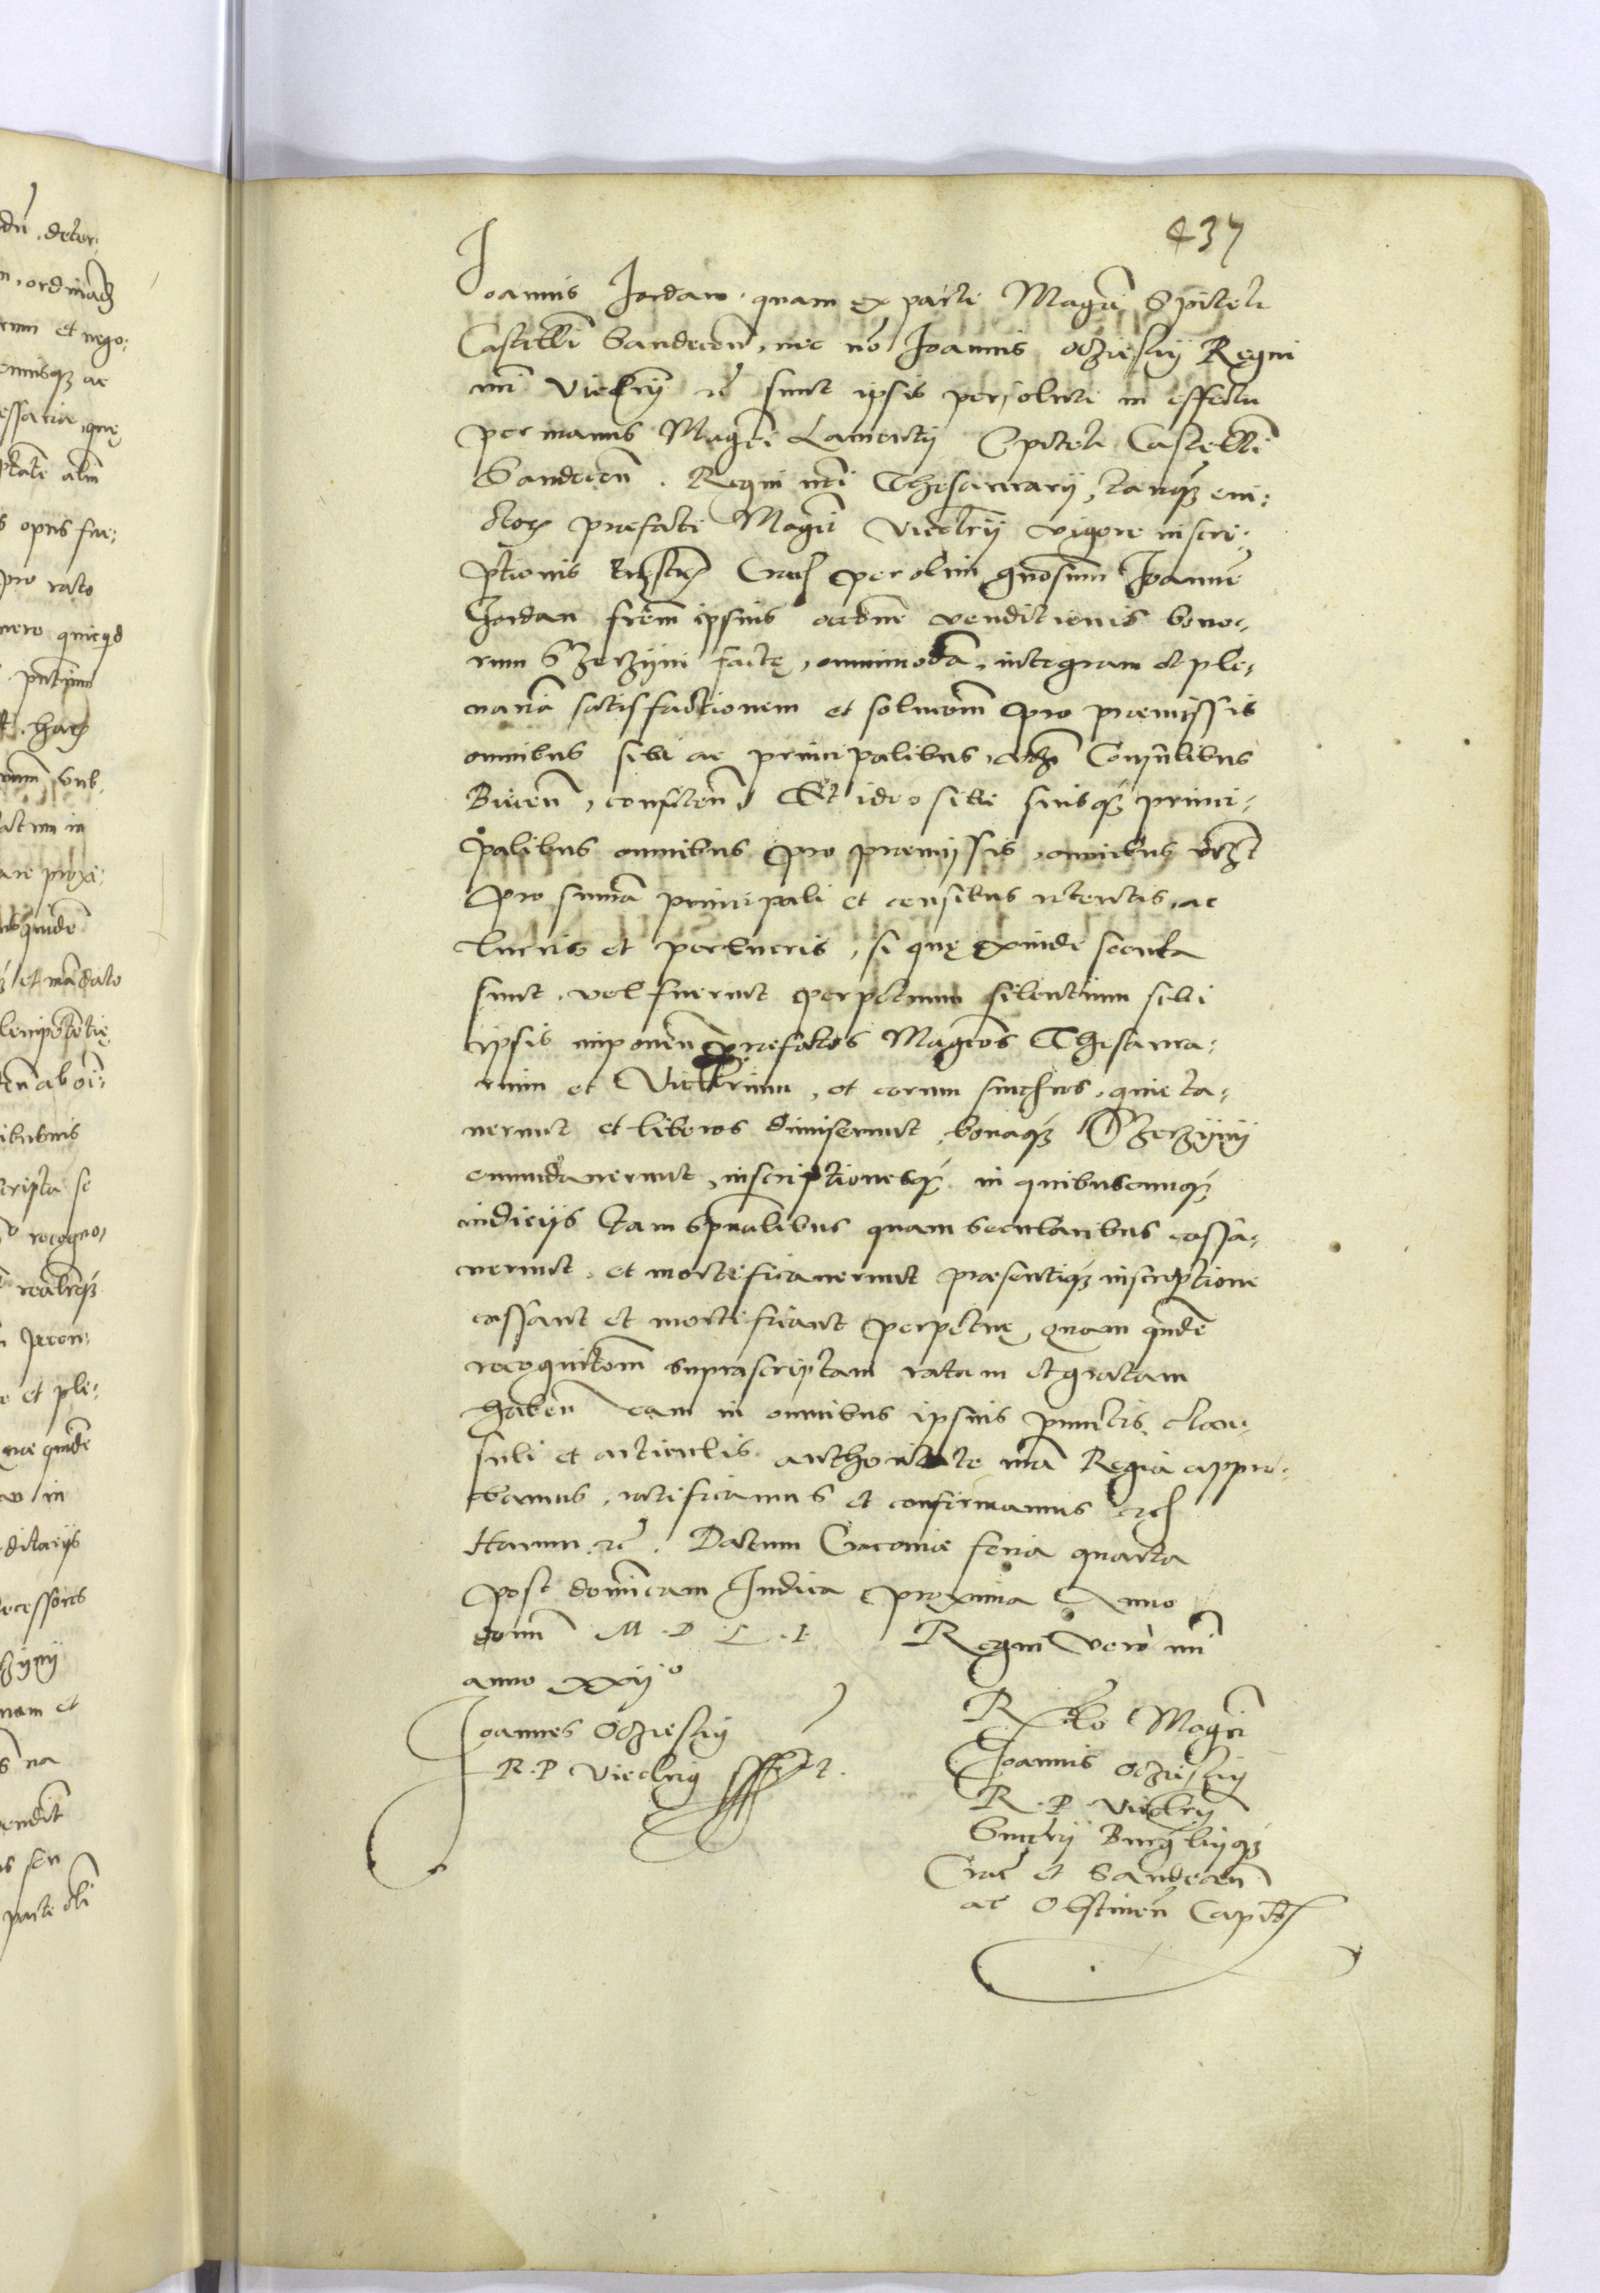 437
Joannis Jordan quam ex parte Magci Spitek
Castellni Sandecen, nec no Joannis Oczieskij Regni
nri Vicecrij etc sunt ipsis persoluti in effectu
per manus Magci Laurentij Spitek Castellni
Sandecen. Regni nri Thesaurarij, tanq evi-
ctor praefati Magci Vicecrij vigore inscri-
ptionis Crac per olim gnosum Joanne
Jordan frem ipsius oardne venditionis bono-
rum Szerzyni factę, omnimoda, integram et ple-
naria satisfactionem et solutiom pro praemissis
omnibus sibi ac principalibus Consulibus
Biecen, confiten. Et ideo sibi suisq princi-
palibus omnibus pro premijssis omnibus
pro suma principali et censibus retentis, ac
lucris et perlucris, si quę exinde secuta
sunt, vel fuerunt perpetuum silentium sibi
ipsis imponen praefatos Magcos Thesaura-
rium et Vicecrium, et eorum successores, quieta-
verunt et liberos dimiserunt, bonaq Szerzynij
emundaverunt, inscriptionesq in quibuscunq
iudicijs tam spualibus quam secularibus cassa-
verunt, et mortificaverunt praesentiq inscriptione
cassant et mortificant perpetuę, quam quide
recognitiom suprascriptam ratam et gratam
haben eam in omnibus ipsius punctis, clau-
suli et articulis authoritate nra Regia appro-
bamus, ratificamus et confirmamus etc
Harum etc. Datum Cracoviae feria quarta
post dominicam Judica proxima Anno
domi M. D. L. I. Regni vero nri
anno xxij°
Joannes Oczieskij
R. P. Vicecrius sst.
Rlo Magci
Joannis Oczieskij
R. P. Vicecrij
Succrij Burgbijq
Crac et Sandecen
ac Olstinen Capit